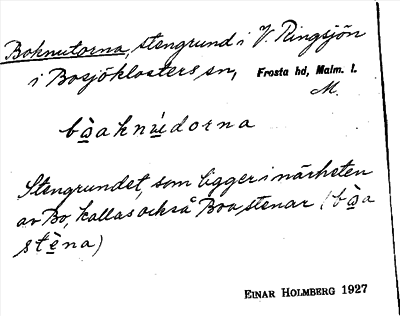 Boknutorna, stengrund i V. Ringsjön
i Bosjöklosters sn, Frosta hd, Malm. l.
M.
bo̱̊aknu̱dorna
Stengrundet, som ligger i närheten
av Bo, kallas också Boa stenar (bo̱̊a
stè̱na)
EINAR HOLMBERG 1927